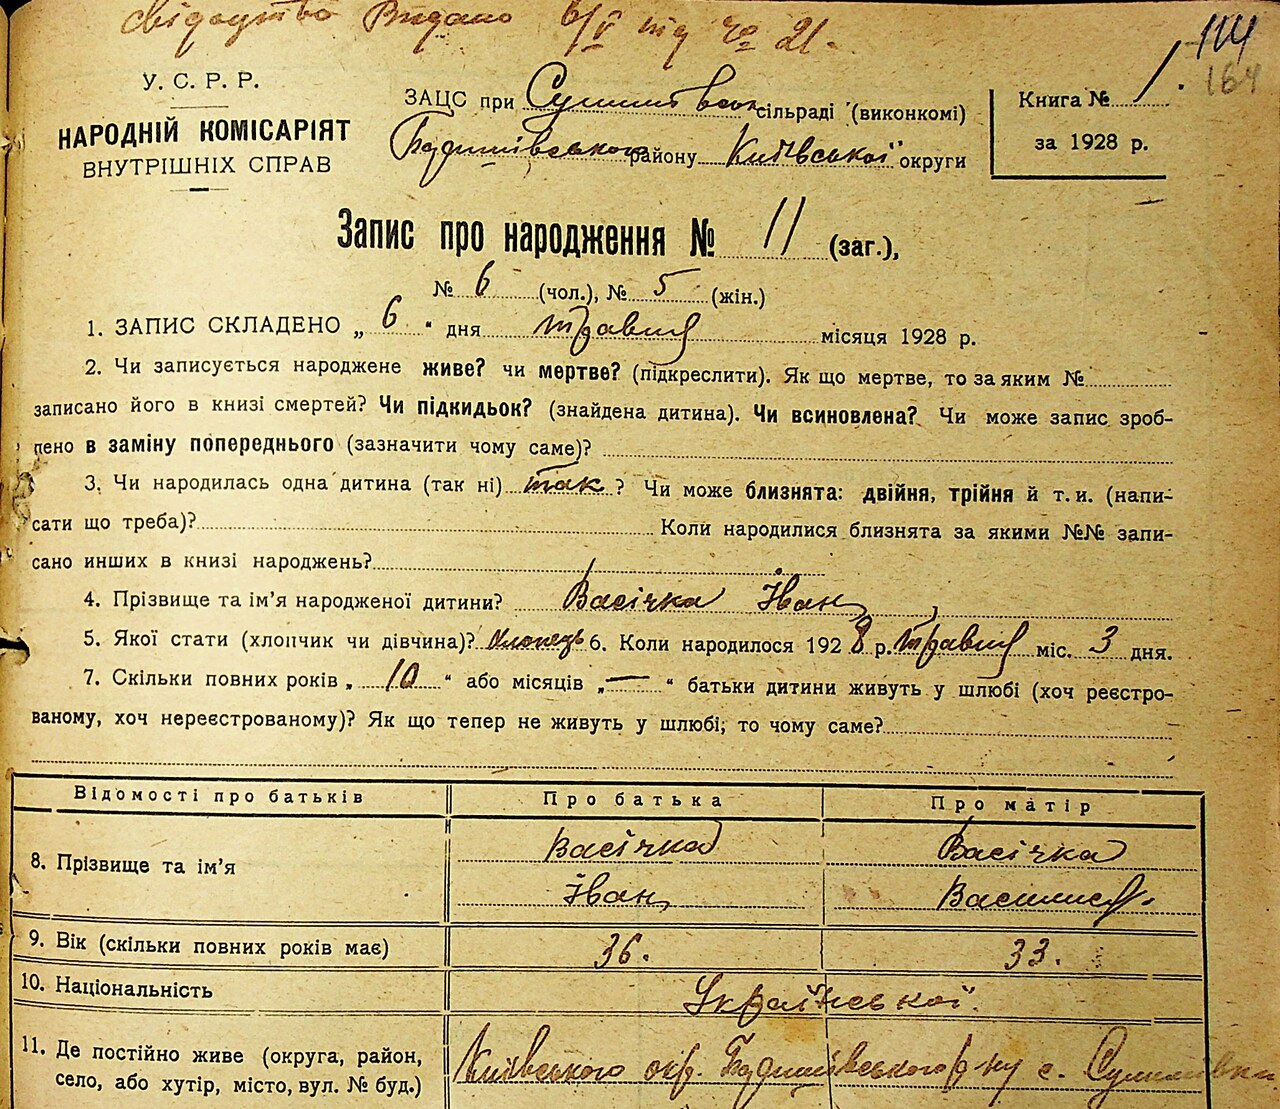 Свідоцтво Видано 6/V під № 21.
114
164
У. С. Р. Р.
НАРОДНІЙ КОМІСАРІЯТ
ВНУТРІШНІХ СПРАВ
ЗАЦС при Сулимівськ сільраді (виконкомі)
Будишівського району Київської округи
Книга № 1.
за 1928 р.
Запис про народження № 11 (заг.),
№ 6 (чол.), № 5 (жін.)
1. ЗАПИС СКЛАДЕНО „ 6 “ дня травня місяця 1928 р.
2. Чи записується народжене живе? чи мертве? (підкреслити). Як що мертве, то за яким №
записано його в книзі смертей? Чи підкидьок? (знайдена дитина). Чи всиновлена? Чи може запис зроб-
лено в заміну попереднього (зазначити чому саме)?
3. Чи народилась одна дитина (так ні) так ? Чи може близнята: двійня, трійня й т. и. (напи-
сати що треба)? Коли народилися близнята за якими №№ запи-
сано инших в книзі народжень?
4. Прізвище та ім’я народженої дитини? Васічка Іван
5. Якої стати (хлопчик чи дівчина)? Хлопець 6. Коли народилося 1928 р. травня міс. 3 дня.
7. Скільки повних років „ 10 “ або місяців „ — “ батьки дитини живуть у шлюбі (хоч реєстро-
ваному, хоч нереєстрованому)? Як що тепер не живуть у шлюбі, то чому саме?
Відомості про батьків Про батька Про матір
8. Прізвище та ім’я
Васічка Васічка
Іван Василиса.
9. Вік (скільки повних років має) 36. 33.
10. Національність Української.
11. Де постійно живе (округа, район,
село, або хутір, місто, вул. № буд.)
Київського окр. Будишівського р-ну с. Сулимівки